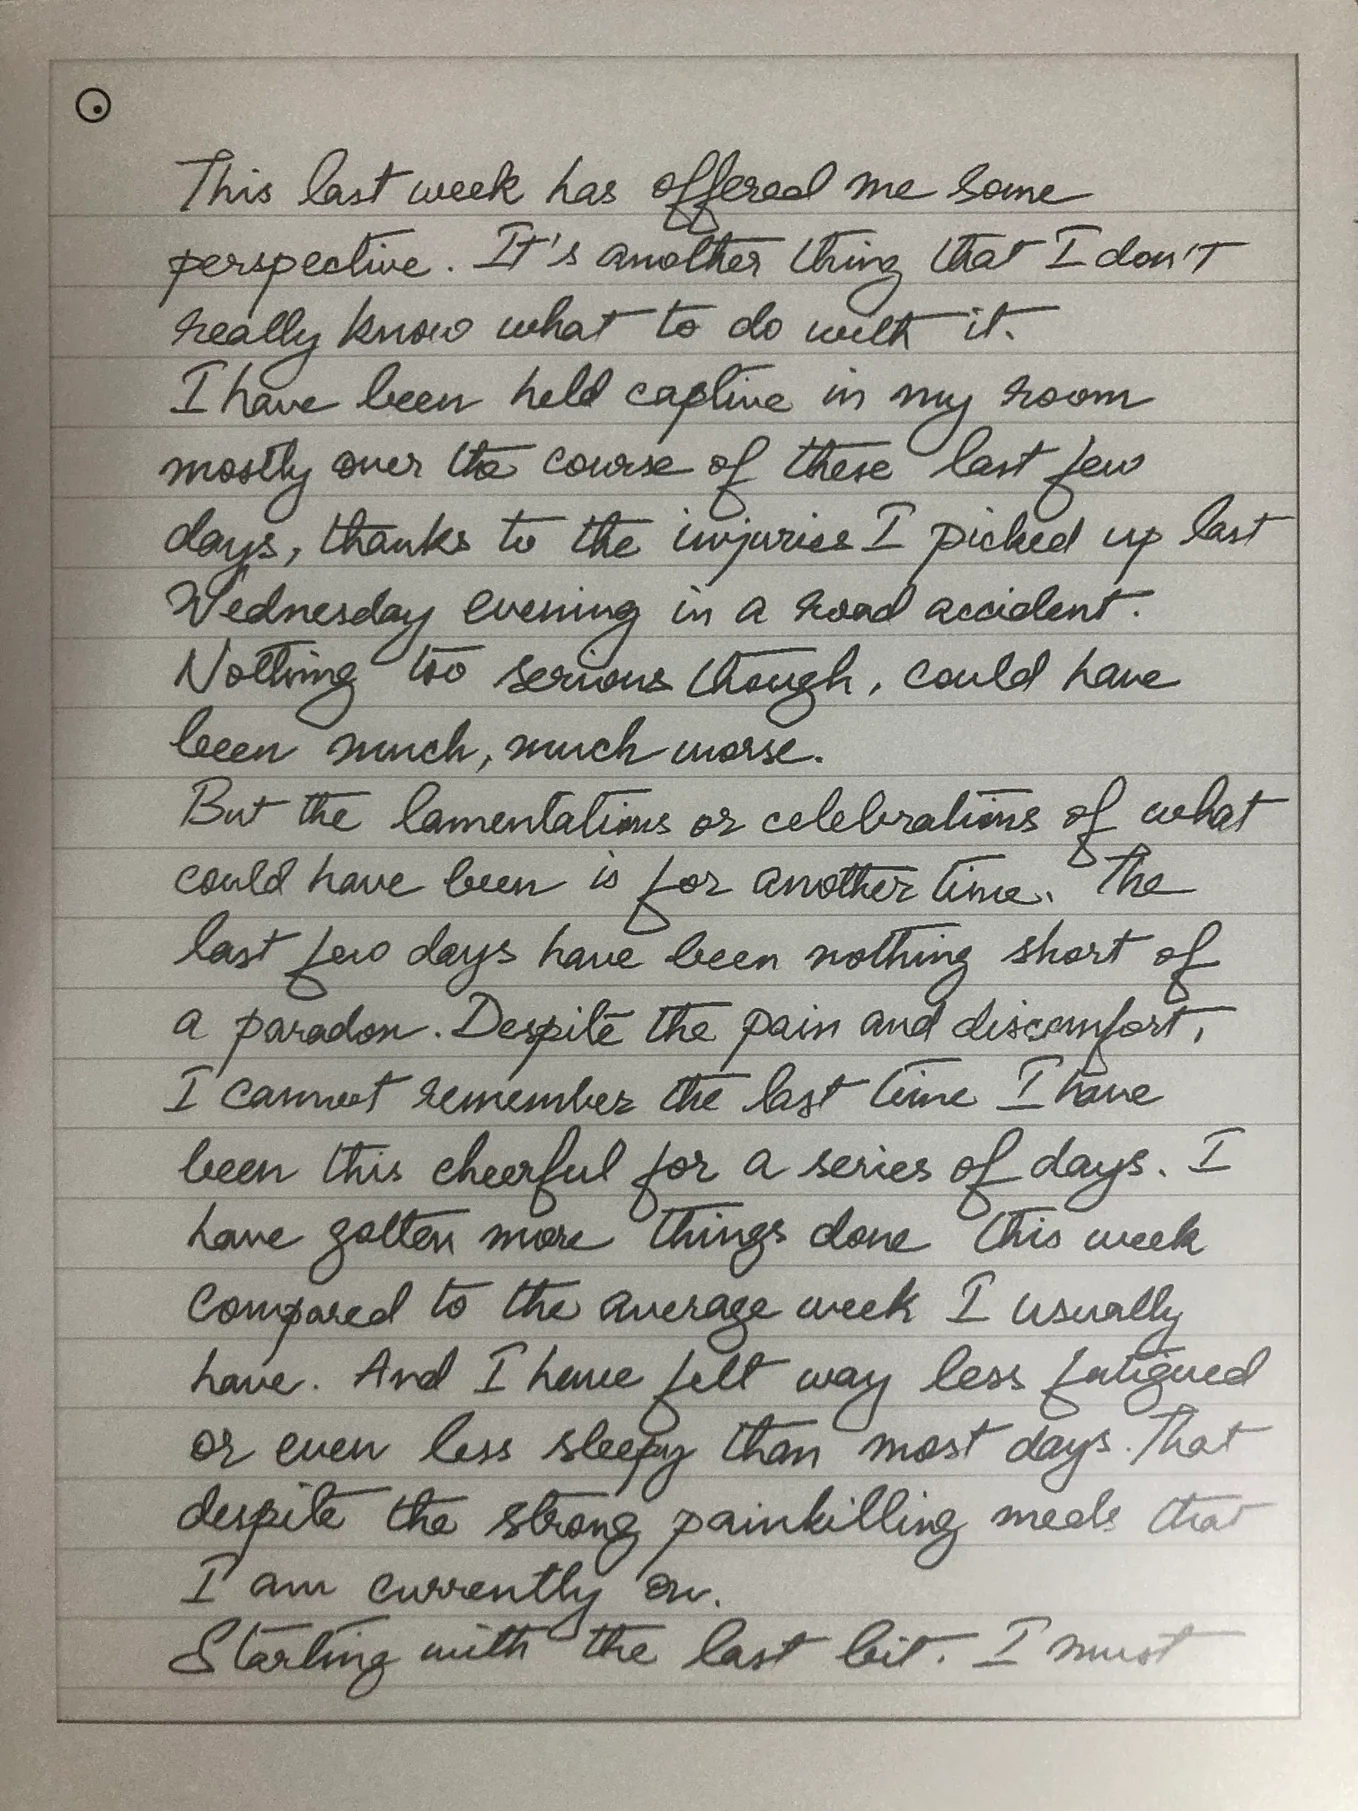 This last week has offered me some
perspective. It's another thing that I don't
really know what to do with it.
I have been held captive in my room
mostly over the course of these last few
days, thanks to the injuries I picked up last
Wednesday evening in a road accident.
Nothing too serious though, could have
been much, much worse.
But the lamentations or celebrations of what
could have been is for another time. The
last few days have been nothing short of
a paradox. Despite the pain and discomfort,
I cannot remember the last time I have
been this cheerful for a series of days. I
have gotten more things done this week
compared to the average week I usually
have. And I have felt way less fatigued
or even less sleepy than most days. That
despite the strong painkilling meds that
I am currently on.
Starting with the last bit. I must